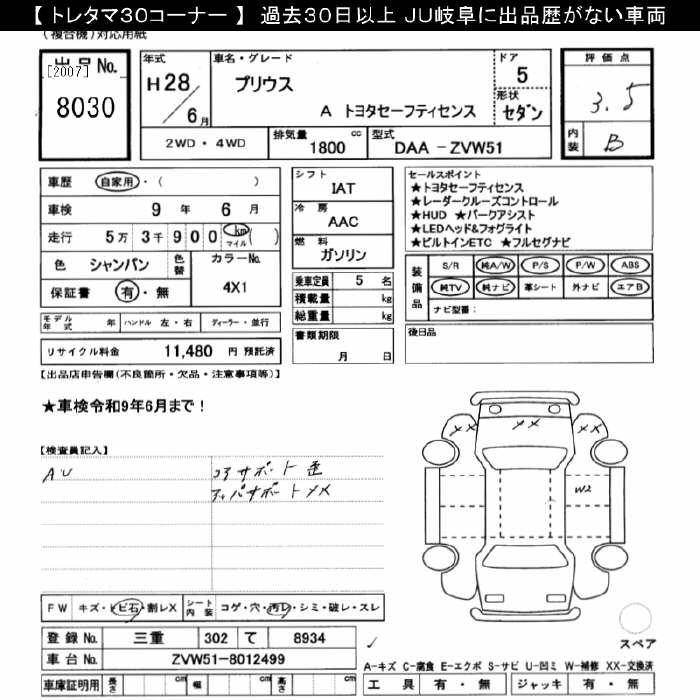 【 トレタマ30コーナー 】 過去30日以上 JU岐阜に出品歴がない車両
(複合機)対応用紙
出品No.
[2007]
8030
年式
H28/6月
車名・グレード
プリウス
A トヨタセーフティセンス
ドア
5
形状
セダン
評価点
3.5
内装
B
2WD・4WD
排気量
1800 cc
型式
DAA -ZVW51
車歴 自家用・( )
車検 9 年 6 月
走行 5万 3千 9 0 0 km マイル ( )
色 シャンパン 色替
カラーNo.
4X1
保証書 有・無
シフト
IAT
冷房
AAC
燃料
ガソリン
乗車定員 5 名
積載量 kg
総重量 kg
書類期限
月 日
セールスポイント
★トヨタセーフティセンス
★レーダークルーズコントロール
★HUD ★パークアシスト
★LEDヘッド&フォグライト
★ビルトインETC ★フルセグナビ
装備品
S/R 純A/W P/S P/W ABS
純TV 純ナビ 革シート 外ナビ エアB
ナビ型番:
後日品
モデル年式 年 ハンドル 左・右 ディーラー・並行
リサイクル料金 11,480 円 預託済
【出品店申告欄(不良箇所・欠品・注意事項等)】
★車検令和9年6月まで!
【検査員記入】
AU
コアサポート歪
アッパサポートXX
XX
XX
XX
W2
FW キズ・トビ石・割レX
シート内装 コゲ・穴・汚レ・シミ・破レ・スレ
登録No. 三重 302 て 8934
車台No. ZVW51-8012499
スペア
車庫証明用 長さ cm 幅 cm 高さ cm
A-キズ C-腐食 E-エクボ S-サビ U-凹ミ W-補修 XX-交換済
工具 有・無 ジャッキ 有・無